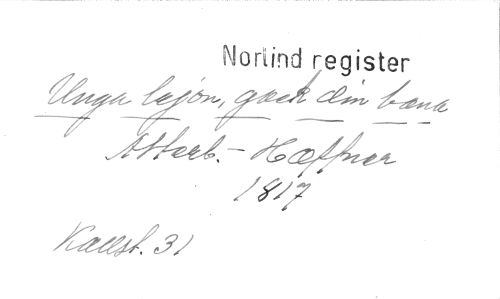 Norlind register
Unga lejon, gack din bana
Atterb. - Hæffner
1817
Kallst. 31